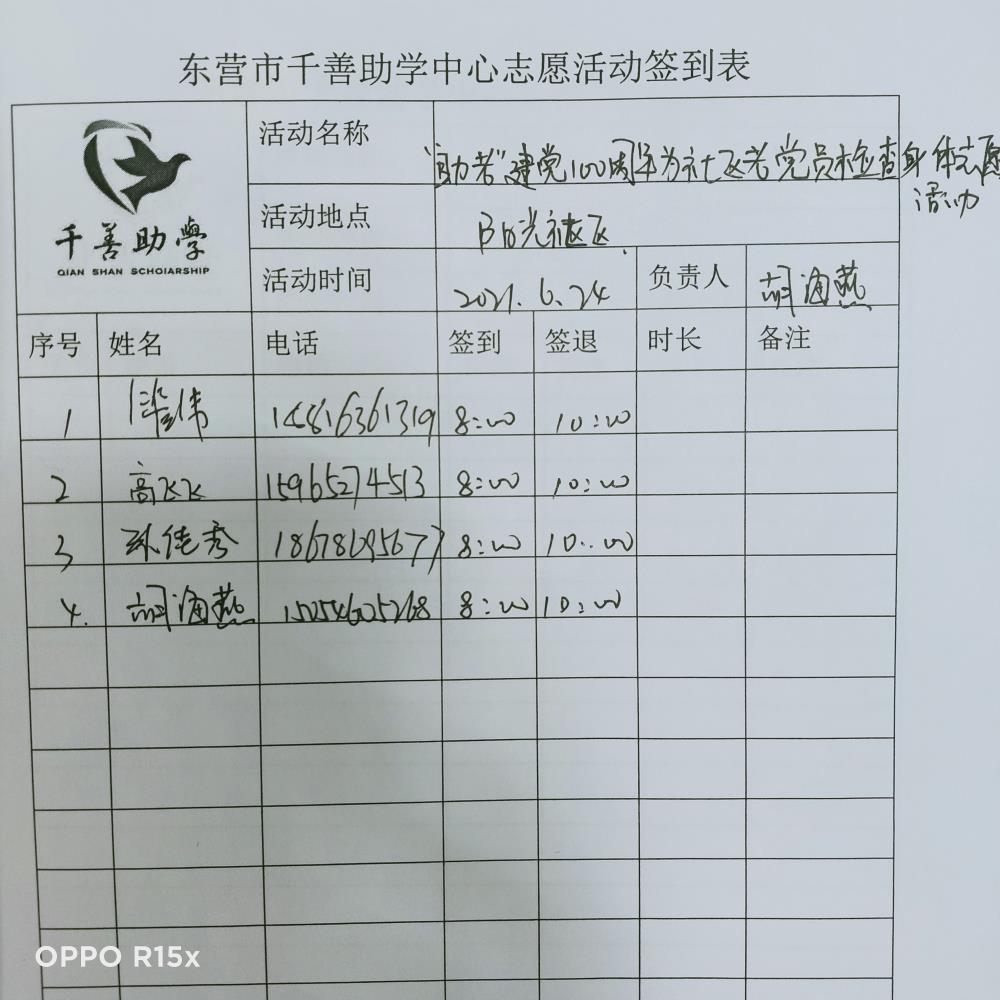 东营市千善助学中心志愿活动签到表
千善助學
QIAN SHAN SCHOlARSHIP
活动名称 "助老"建党100周年为社区老党员检查身体志愿
活动
活动地点 阳光社区
活动时间 2021.6.24 负责人 胡海燕
序号 姓名 电话 签到 签退 时长 备注
1 8:00 10:00
2 高飞飞 15965274513 8:00 10:00
3 孙佳秀 18678695677 8:00 10:00
4. 胡海燕 15254605268 8:00 10:00
OPPO R15x